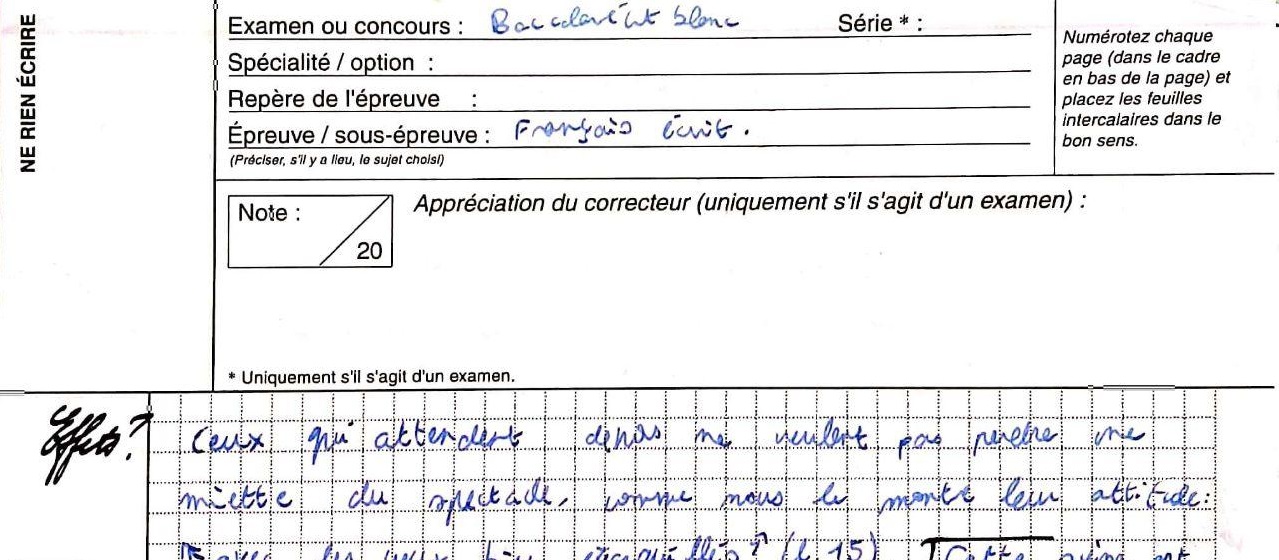 NE RIEN ÉCRIRE
Examen ou concours : Baccalauréat blanc Série * :
Spécialité / option :
Repère de l'épreuve :
Épreuve / sous-épreuve : Français écrit.
(Préciser, s'il y a lieu, le sujet choisi)
Numérotez chaque
page (dans le cadre
en bas de la page) et
placez les feuilles
intercalaires dans le
bon sens.
Note :
20
Appréciation du correcteur (uniquement s'il s'agit d'un examen) :
* Uniquement s'il s'agit d'un examen.
Effets?
Ceux qui attendent dehors ne veulent pas perdre une
miette du spectacle, comme nous le montre leur attitude:
avec les yeux bien écarquillés" (l 15) [Cette